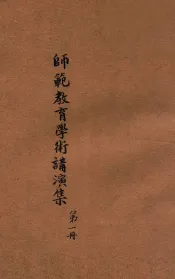 師範教育學術講演集
第一冊